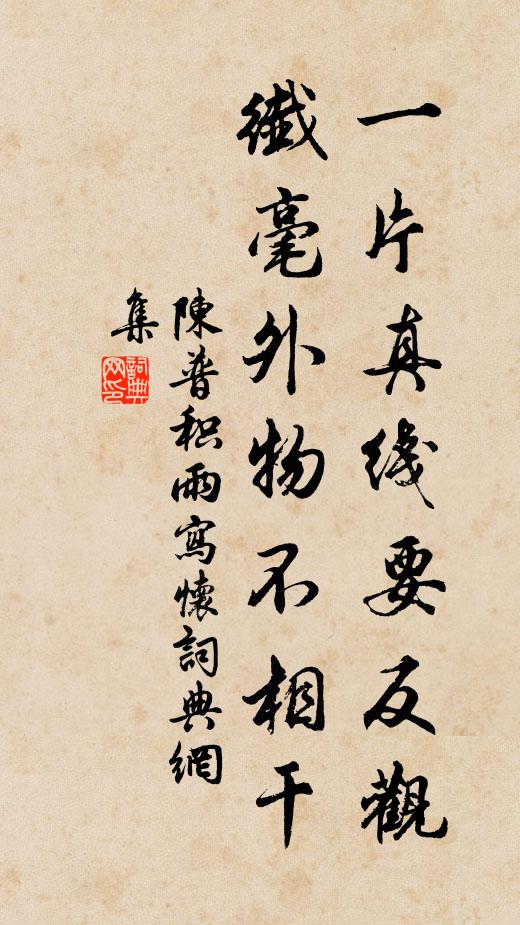 一片真线要反觀
纖毫外物不相干
陳普积雨寫懷詞典網
集
詞典网印